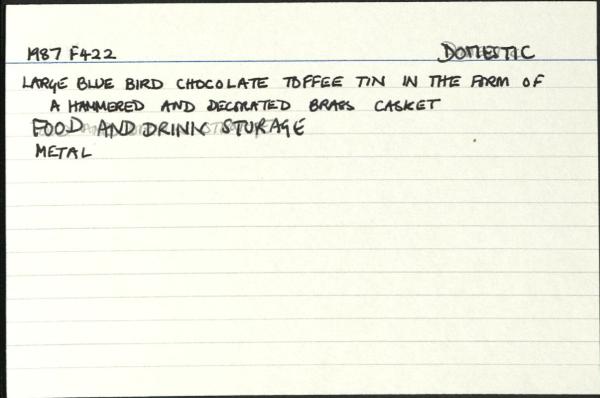 1987 F422 DOMESTIC
LARGE BLUE BIRD CHOCOLATE TOFFEE TIN IN THE FORM OF
A HAMMERED AND DECORATED BRASS CASKET
FOOD AND DRINK STORAGE
METAL